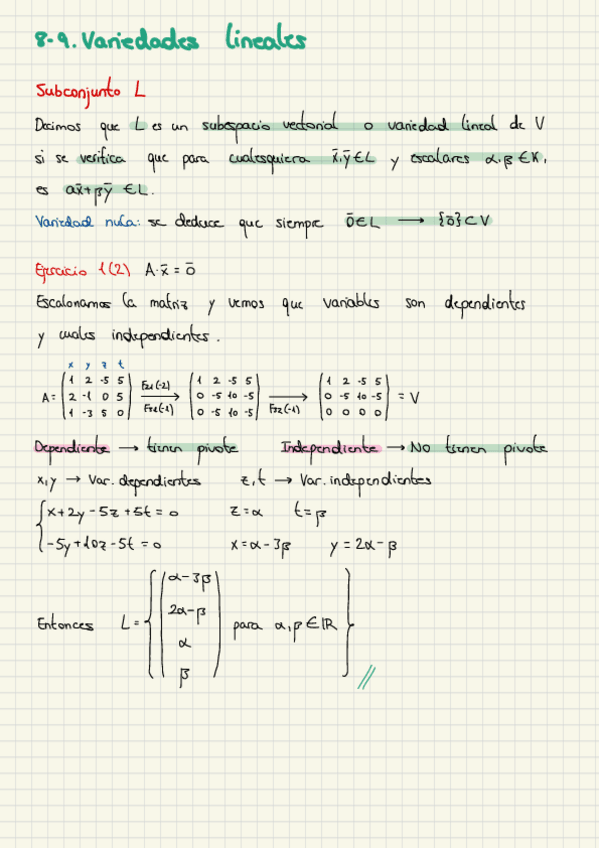 8-9. Variedades lineales
Subconjunto L
Decimos que L es un subespacio vectorial o variedad lineal de V
si se verifica que para cualesquiera x̄,ȳ∈L y escalares α,β∈K,
es ax̄+βȳ ∈L.
Variedad nula: se deduce que siempre ō∈L → {ō}⊂V
Ejercicio 1(2) A·x̄=ō
Escalonamos la matriz y vemos que variables son dependientes
y cuales independientes.
x y z t
A= (1 2 -5 5 / 2 -1 0 5 / 1 -3 5 0) F21(-2) F31(-1) → (1 2 -5 5 / 0 -5 10 -5 / 0 -5 10 -5) F32(-1) → (1 2 -5 5 / 0 -5 10 -5 / 0 0 0 0) = V
Dependiente → tienen pivote Independiente → No tienen pivote
x,y → Var. dependientes z,t → Var. independientes
x+2y-5z+5t=0 z=α t=β
-5y+10z-5t=0 x=α-3β y=2α-β
Entonces L={(α-3β / 2α-β / α / β) para α,β∈ℝ}